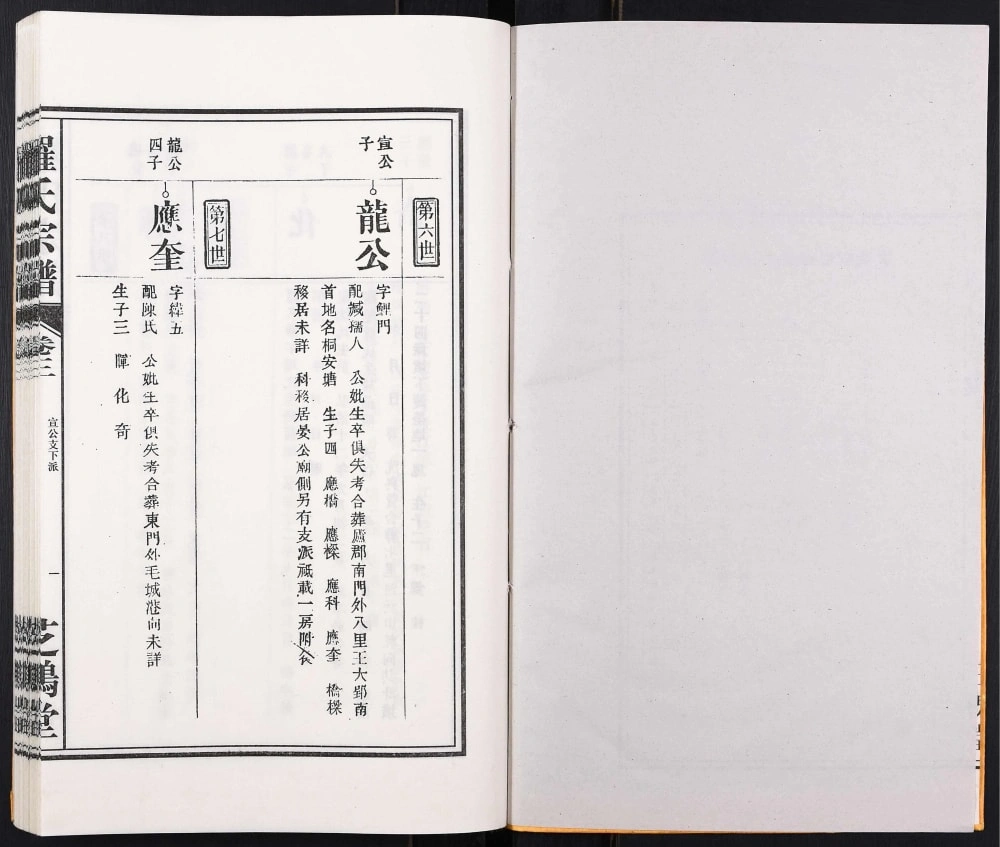 第六世
宣公
子
龍公
字鯉門
配臧孺人　公妣生卒俱失考合葬廬郡南門外八里王大郢南
首地名桐安塘　生子四　應橋　應樑　應科　應奎　橋樑
移居未詳　科移居晏公廟側另有支派祗載一二房附後
第七世
龍公
四子
應奎
字緯五
配陳氏　公妣生卒俱失考合葬東門外毛城港向未詳
生子三　暉　化　奇
羅氏宗譜
卷三
宣公支下派
一
堂